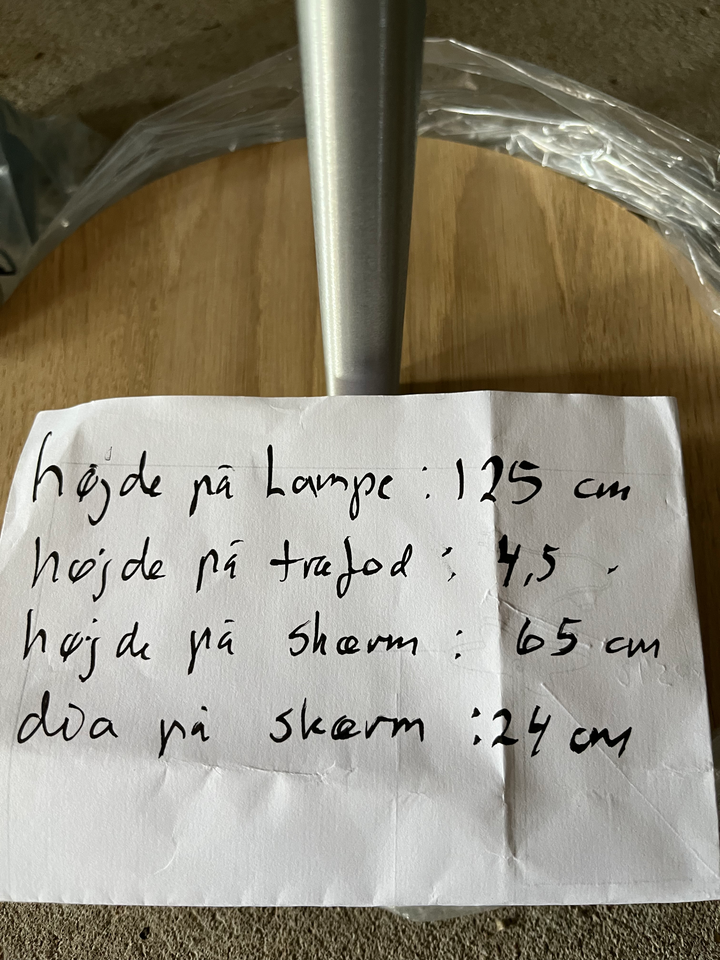 højde på Lampe : 125 cm
højde på trafod : 4,5
højde på skærm : 65 cm
dia på skærm : 24 cm